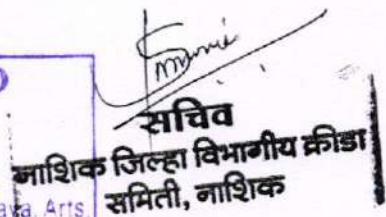 सचिव
नाशिक जिल्हा विभागीय क्रीडा
समिती, नाशिक
Arts